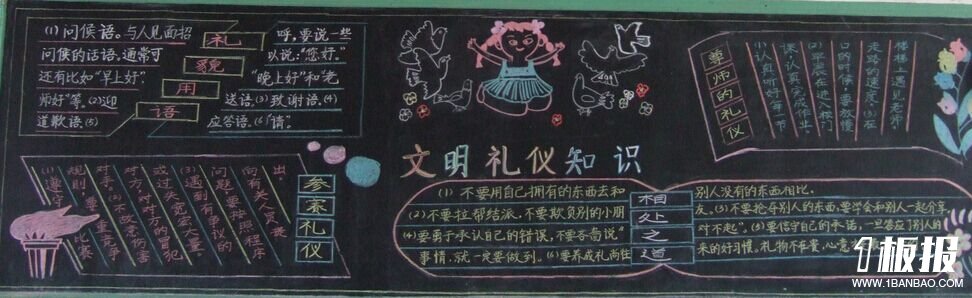 (1)问候语。与人见面招
呼，要说一些
问候的话语，通常可
以说："您好。"
还有比如"早上好"
"晚上好"和"老
师好"等。(2)迎
送语。(3)致谢语。(4)
道歉语。(5)
应答语。(6)"请"。
礼
貌
用
语
文明礼仪知识
尊师的礼仪
楼梯中遇见老师
走路的速度。(3)在
口的时候，要放慢
(2)早晨在进入校门
课，认真完成作业
(1)认真听好每一节
参赛礼仪
(1)遵守比赛
规则，尊重竞争
对手。(2)不故意伤害
对方，对对方的冒犯
或过失宽宏大量。
(3)遇到有争议的
问题，要按照程序
向有关人员提
出。
相处之道
(1)不要用自己拥有的东西去和
别人没有的东西相比。
(2)不要拉帮结派，不要欺负别的小朋
友。(3)不要抢夺别人的东西，要学会和别人一起分享
(4)要勇于承认自己的错误，不要吝啬说"
对不起"。(5)要信守自己的承诺，一旦答应了别人的
事情，就一定要做到。(6)要养成礼尚往
来的好习惯。礼物不在贵，心意
1板报
WWW.1BANBAO.COM